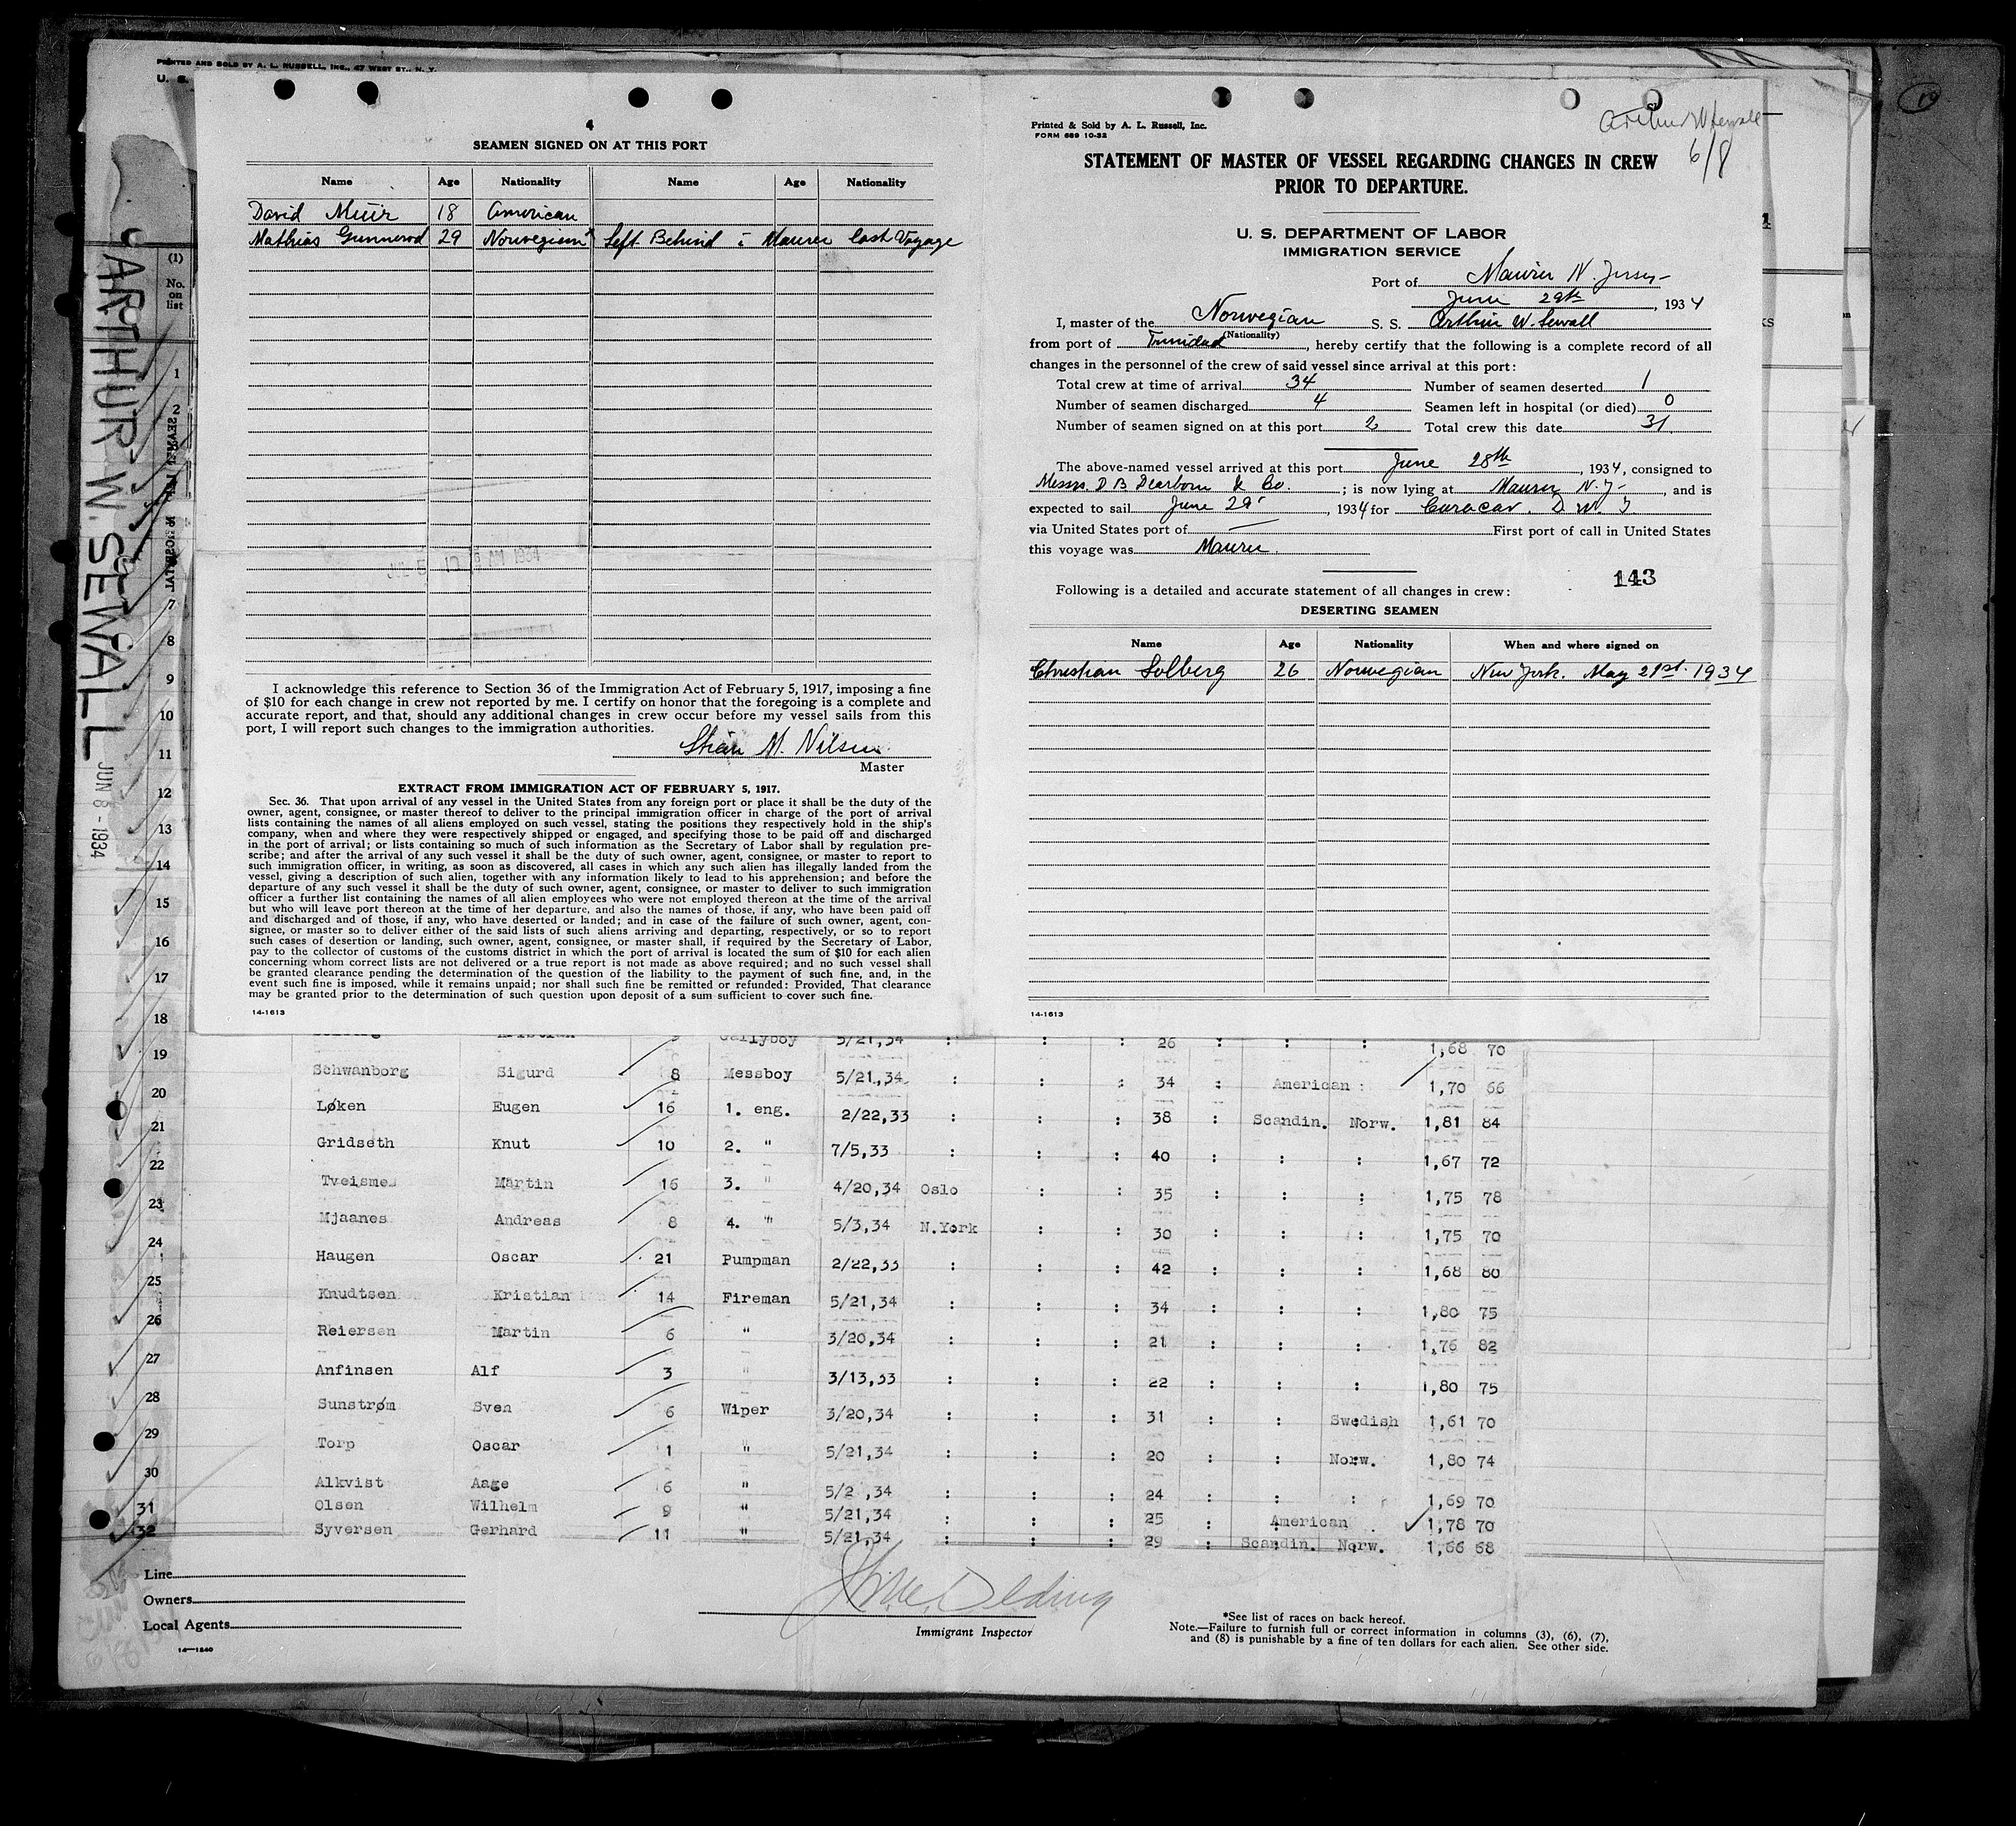 PRINTED AND SOLD BY A. L. RUSSELL, INC., 47 WEST ST., N. Y.
U. S.
ARTHUR W. SEWALL
JUN 8 - 1934
(1)
No. on list
4
SEAMEN SIGNED ON AT THIS PORT
Name Age Nationality Name Age Nationality
David Muir 18 American
Mathias Gunnerod 29 Norwegian * Left Behind i Maurer last Voyage
10 AM 1934
I acknowledge this reference to Section 36 of the Immigration Act of February 5, 1917, imposing a fine
of $10 for each change in crew not reported by me. I certify on honor that the foregoing is a complete and
accurate report, and that, should any additional changes in crew occur before my vessel sails from this
port, I will report such changes to the immigration authorities.
M. Nilsen
Master
EXTRACT FROM IMMIGRATION ACT OF FEBRUARY 5, 1917.
Sec. 36. That upon arrival of any vessel in the United States from any foreign port or place it shall be the duty of the
owner, agent, consignee, or master thereof to deliver to the principal immigration officer in charge of the port of arrival
lists containing the names of all aliens employed on such vessel, stating the positions they respectively hold in the ship's
company, when and where they were respectively shipped or engaged, and specifying those to be paid off and discharged
in the port of arrival; or lists containing so much of such information as the Secretary of Labor shall by regulation pre-
scribe; and after the arrival of any such vessel it shall be the duty of such owner, agent, consignee, or master to report to
such immigration officer, in writing, as soon as discovered, all cases in which any such alien has illegally landed from the
vessel, giving a description of such alien, together with any information likely to lead to his apprehension; and before the
departure of any such vessel it shall be the duty of such owner, agent, consignee, or master to deliver to such immigration
officer a further list containing the names of all alien employees who were not employed thereon at the time of the arrival
but who will leave port thereon at the time of her departure, and also the names of those, if any, who have been paid off
and discharged and of those, if any, who have deserted or landed; and in case of the failure of such owner, agent, con-
signee, or master so to deliver either of the said lists of such aliens arriving and departing, respectively, or so to report
such cases of desertion or landing, such owner, agent, consignee, or master shall, if required by the Secretary of Labor,
pay to the collector of customs of the customs district in which the port of arrival is located the sum of $10 for each alien
concerning whom correct lists are not delivered or a true report is not made as above required; and no such vessel shall
be granted clearance pending the determination of the question of the liability to the payment of such fine, and, in the
event such fine is imposed, while it remains unpaid; nor shall such fine be remitted or refunded: Provided, That clearance
may be granted prior to the determination of such question upon deposit of a sum sufficient to cover such fine.
14-1613
Printed & Sold by A. L. Russell, Inc.
FORM 689 10-32
Arthur W Sewall
6/8
STATEMENT OF MASTER OF VESSEL REGARDING CHANGES IN CREW
PRIOR TO DEPARTURE.
U. S. DEPARTMENT OF LABOR
IMMIGRATION SERVICE
Port of Maurer N. Jersey
June 29th, 1934
I, master of the Norwegian S. S. Arthur W. Sewall
(Nationality)
from port of Trinidad, hereby certify that the following is a complete record of all
changes in the personnel of the crew of said vessel since arrival at this port:
Total crew at time of arrival 34 Number of seamen deserted 1
Number of seamen discharged 4 Seamen left in hospital (or died) 0
Number of seamen signed on at this port 2 Total crew this date 31
The above-named vessel arrived at this port June 28th, 1934, consigned to
Messrs. D B Dearborn & Co.; is now lying at Maurer N. J-, and is
expected to sail June 29', 1934 for Curacao. D. W. I
via United States port of — First port of call in United States
this voyage was Maurer.
143
Following is a detailed and accurate statement of all changes in crew:
DESERTING SEAMEN
Name Age Nationality When and where signed on
Christian Solberg 26 Norwegian New York. May 21st. 1934
14-1613
1
2
7
8
9
10
11
12
13
14
15
16
17
18
19 Gallyboy 5/21,34 : : : 26 : : : 1,68 70
20 Schwanborg Sigurd 8 Messboy 5/21,34 : : : 34 : American : 1,70 66
21 Løken Eugen 16 1. eng. 2/22,33 : : : 38 : Scandin. Norw. 1,81 84
22 Gridseth Knut 10 2. " 7/5,33 : : : 40 : : : 1,67 72
23 Tveisme Martin 16 3. " 4/20,34 Oslo : : 35 : : : 1,75 78
24 Mjaanes Andreas 8 4. " 5/3,34 N.York : : 30 : : : 1,75 70
25 Haugen Oscar 21 Pumpman 2/22,33 : : : 42 : : : 1,68 80
26 Knudtsen Kristian 14 Fireman 5/21,34 : : : 34 : : : 1,80 75
27 Reiersen Martin 6 " 3/20,34 : : : 21 : : : 1,76 82
28 Anfinsen Alf 3 " 3/13,33 : : : 22 : : : 1,80 75
29 Sunstrøm Sven 6 Wiper 3/20,34 : : : 31 : : Swedish 1,61 70
30 Torp Oscar 1 " 5/21,34 : : : 20 : : Norw. 1,80 74
Alkvist Aage 6 " 5/2 ,34 : : : 24 : : : 1,69 70
31 Olsen Wilhelm 9 " 5/21,34 : : : 25 : American 1,78 70
32 Syversen Gerhard 11 " 5/21,34 : : : 29 : Scandin. Norw. 1,66 68
Line
Owners
Local Agents
14—1240
Immigrant Inspector
*See list of races on back hereof.
Note.—Failure to furnish full or correct information in columns (3), (6), (7),
and (8) is punishable by a fine of ten dollars for each alien. See other side.